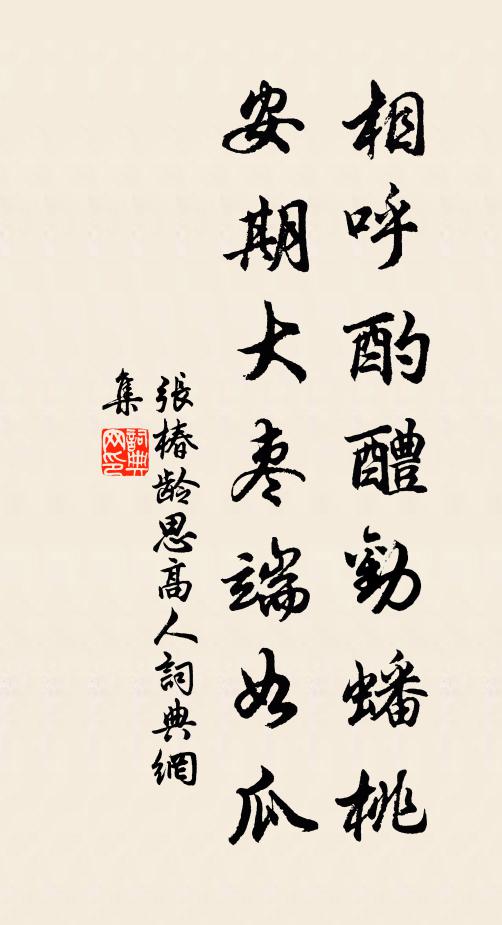 相呼酌醴勸蟠桃
安期大枣端如瓜
張椿龄思高人詞典網
集
詞典
网印